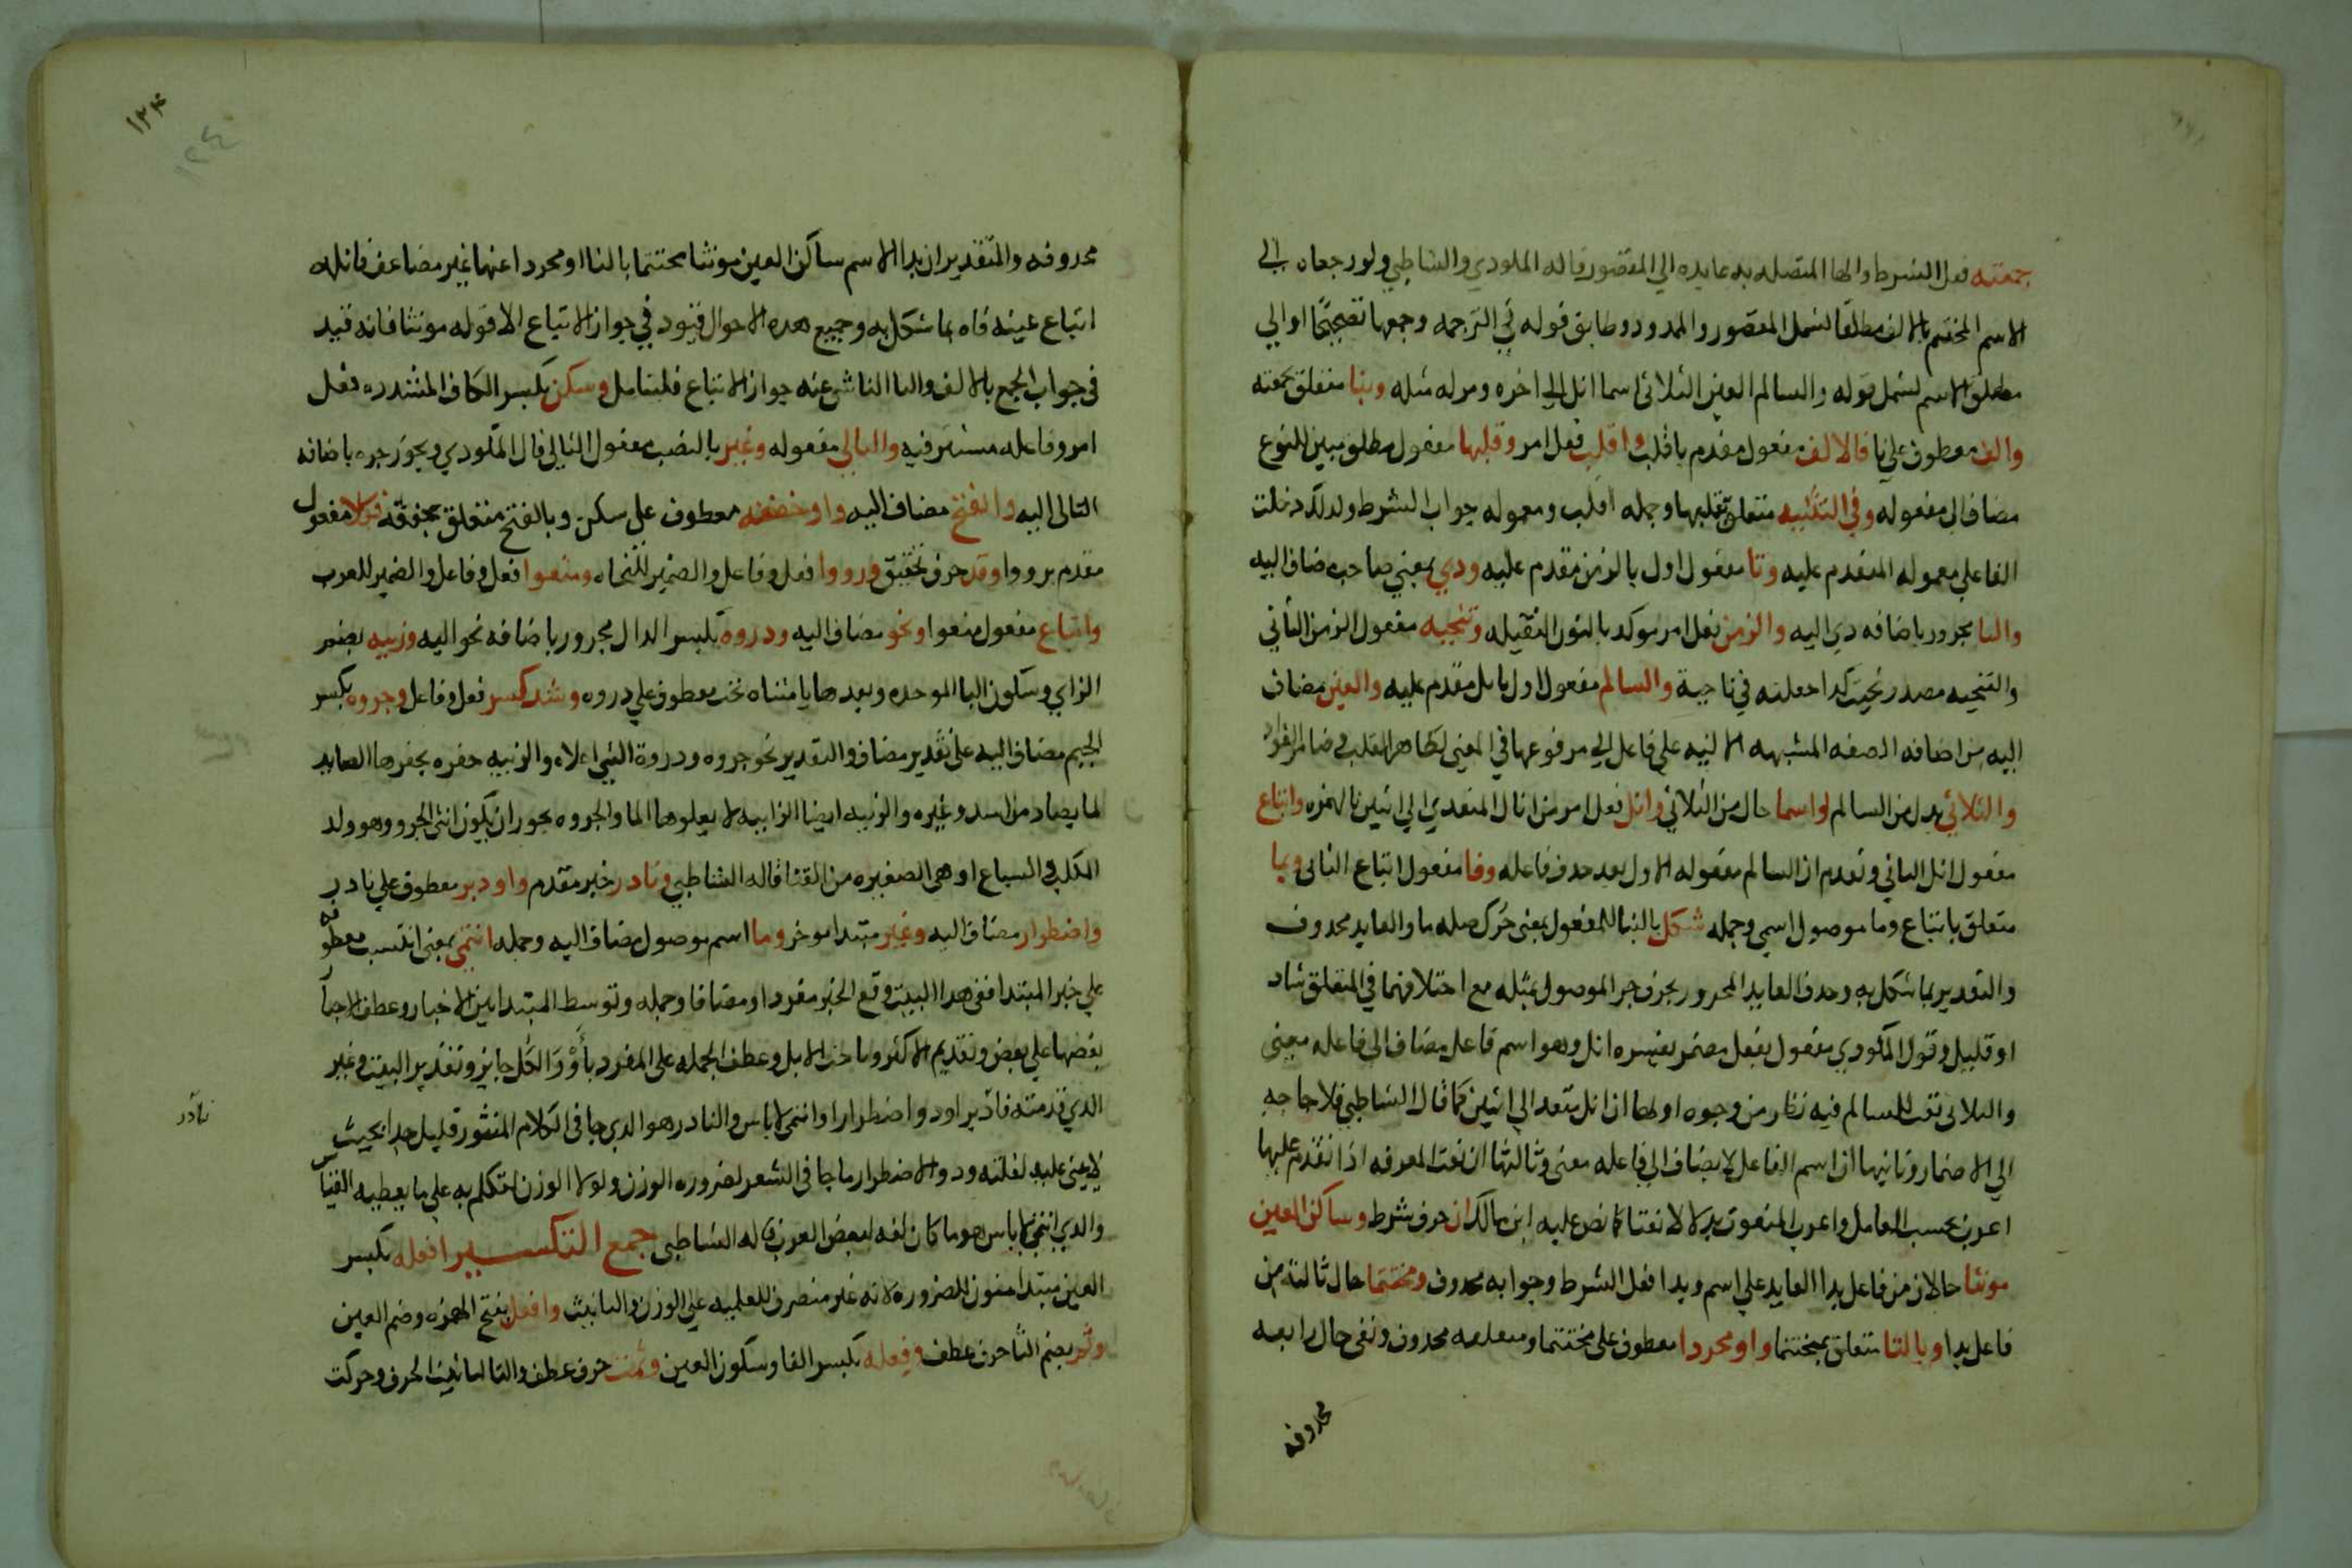 جمعته فعل الشرط والها المتصله به عايده الي المقصور قاله المكودي والشاطبي ولو رجعاه الي
الاسم المختم بالالف مطلقا لشمل المقصور والممدود وطابق قوله في الترجمه وجمعها تصحيحا او الي
مطلق الاسم لشمل قوله والسالم العين الثلاثي اسما انل الي اخره ومر له مثله وبتا متعلق بجمعته
والف معطوف علي تا فالالف مفعول مقدم باقلب واقلب فعل امر وقلبها مفعول مطلق مبين للنوع
مضاف الي مفعوله وفي التثنيه متعلق بقلبها وجمله اقلب ومعموله جواب الشرط ولذلك دخلت
الفا علي معموله المتقدم عليه وتا مفعول اول بالزمن مقدم عليه وذي بمعني صاحب مضاف اليه
والتا مجرور باضافه ذي اليه والزمن فعل امر موكد بالنون الثقيله وتنحيه مفعول الزمن الثاني
والتنحيه مصدر نحيت كذا جعلته في ناحية والسالم مفعول اول بانل مقدم عليه والعين مضاف
اليه من اضافه الصفه المشبهه الي فاعل الي مرفوعها في المعني
والثلاثي بدل من السالم واسما حال من الثلاثي وانل فعل امر من انال المتعدي الي اثنين بالهمزه واتباع
مفعول انل الثاني وتقدم ان السالم مفعوله الاول بعد حذف فاعله وفا مفعول اتباع الثاني وبما
متعلق باتباع وما موصول اسمي وجمله شكل بالبنا للمفعول بمعني حرك صله ما والعايد محذوف
والتقدير بما شكل به وحذف العايد المجرور بحرف جر الموصول بمثله مع اختلافهما في المتعلق شاذ
او قليل وقول المكودي مفعول بفعل مضمر يفسره انل وهو اسم فاعل مضاف الي فاعله معني
والثلاثي نعت للسالم فيه نظر من وجوه اولها ان انل متعد الي اثنين كما قال الشاطبي فلا حاجه
الي الاضمار وثانيها ان اسم الفاعل لا يضاف الي فاعله معني وثالثها ان نعت المعرفه اذا تقدم عليها
اعرب بحسب العامل واعرب المنعوت بدلا لا نعتا كما نص عليه ابن مالك ان حرف شرط وساكن العين
مونثا حالان من فاعل بدا العايد علي اسم وبدا فعل الشرط وجوابه محذوف ومختتما حال ثالثة من
فاعل بدا وبالتا متعلق بمختتما او مجردا معطوف علي مختتما ومتعلقه محذوف ونفي حال رابعه
محذوفه
١٢٤
١٢٤
محذوفه والتقدير ان بدا الاسم ساكن العين مونثا مختتما بالتا او مجردا عنها غير مضاعف فانله
اتباع عينه فاه بما شكل به وجميع هذه الاحوال قيود في جواز الاتباع الا قوله مونثا فانه قيد
في جواب الجمع بالالف والتا الناشي عنه جواز الاتباع فليتامل وسكن بكسر الكاف المشدده فعل
امر وفاعله مستتر فيه والتالي مفعوله وغير بالنصب مفعول التالي قال المكودي ويجوز جره باضافه
التالي اليه والفتح مضاف اليه واو خففه معطوف علي سكن وبالفتح متعلق بخففه فكلا مفعول
مقدم برووا وقد حرف تحقيق ورووا فعل وفاعل والضمير للنحاه ومنعوا فعل وفاعل والضمير للعرب
واتباع مفعول منعوا ونحو مضاف اليه وذروه بكسر الدال مجرور باضافه نحو اليه وزبيه بضم
الزاي وسكون البا الموحده وبعدها يا مثناه تحت معطوف علي ذروه وشذ كسر فعل وفاعل وجروه بكسر
الجيم مضاف اليه علي تقدير مضاف والتقدير نحو جروه وذروة الشي اعلاه والزبيه حفره يحفرها الصايد
لما يصاد من اسد وغيره والزبيه ايضا الرابيه لا يعلوها الما والجروه يجوز ان يكون انثي الجرو وهو ولد
الكلب والسباع او هي الصغيره من القثا قاله الشاطبي ونادر خبر مقدم واو ذو معطوف علي نادر
واضطرار مضاف اليه وغير مبتدا موخر وما اسم موصول مضاف اليه وجمله انتمي بمعني انتسب معطوفه
علي خبر المبتدا ففي هذا البيت وقع الخبر مفردا ومضافا وجمله وتوسط المبتدا بين الاخبار وعطف الاخبار
بعضها علي بعض وتقديم الاكثر وعطف الجمله علي المفرد باو والكل جايز وتقدير البيت وغير
الذي قدمته نادر او ذو اضطرار او انتمي لاناس والنادر هو الذي جا في الكلام المنثور قليل جدا بحيث
لا يبني عليه لقلته وذو الاضطرار ما جا في الشعر لضروره الوزن ولولا الوزن لتكلم به علي ما يعطيه القياس
والذي انتمي لاناس هو ما كان لغه لبعض العرب قاله الشاطبي جمع التكسير افعله بكسر
العين مبتدا منون للضروره لانه غير منصرف للعلميه علي الوزن والتانيث وافعل بفتح الهمزه وضم العين
وثم بضم الثا حرف عطف وفعله بكسر الفا وسكون العين وثمت حرف عطف والتا لتانيث الحرف وحركت
نادر